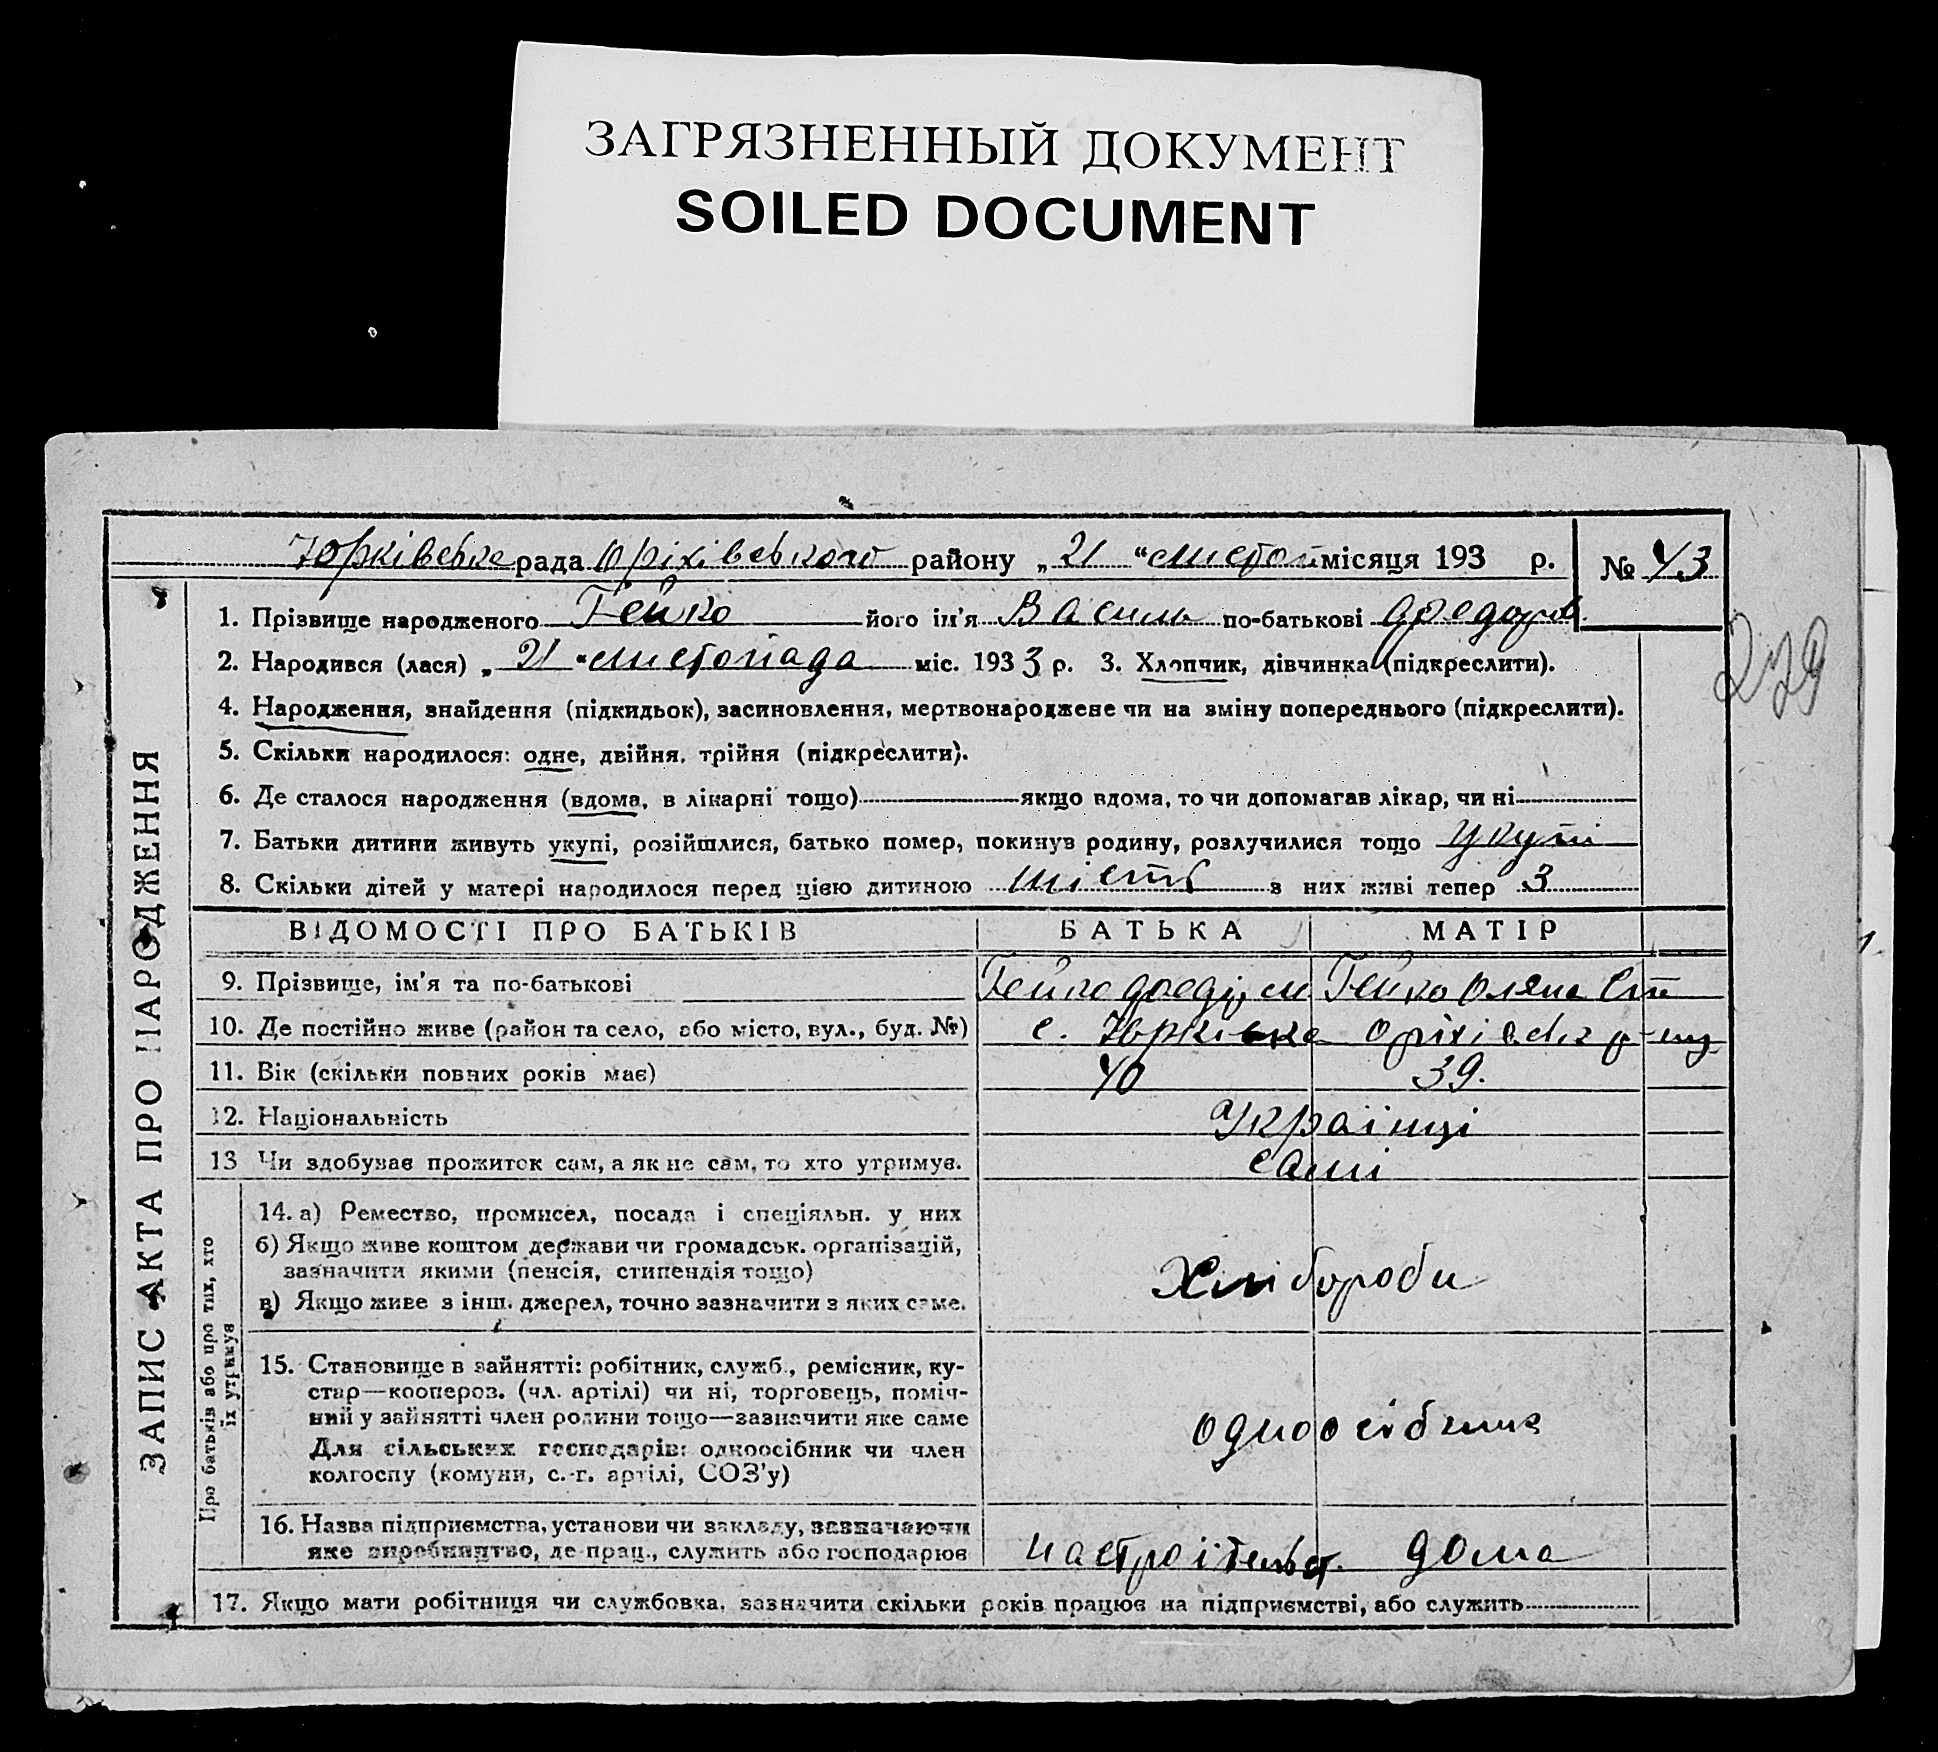 ЗАГРЯЗНЕННЫЙ ДОКУМЕНТ
SOILED DOCUMENT
Юрківське рада Оріхівського району „ 21 “ листоп місяця 193 р. № 43
279
ЗАПИС АКТА ПРО НАРОДЖЕННЯ
1. Прізвище народженого Гейко його ім'я Василь по-батькові Федоров
2. Народився (лася) „ 21 “ листопада міс. 193 3 р. 3. Хлопчик, дівчинка (підкреслити).
4. Народження, знайдення (підкидьок), засиновлення, мертвонароджене чи на зміну попереднього (підкреслити).
5. Скільки народилося: одне, двійня, трійня (підкреслити).
6. Де сталося народження (вдома, в лікарні тощо) якщо вдома, то чи допомагав лікар, чи ні
7. Батьки дитини живуть укупі, розійшлися, батько помер, покинув родину, розлучилися тощо укупі
8. Скільки дітей у матері народилося перед цією дитиною шість з них живі тепер 3
ВІДОМОСТІ ПРО БАТЬКІВ БАТЬКА МАТІР
9. Прізвище, ім'я та по-батькові Гейко Гейко Оляна
10. Де постійно живе (район та село, або місто, вул., буд. №) с. Юрківка Оріхівськ р-ну
11. Вік (скільки повних років має) 40 39.
12. Національність Українці
13 Чи здобуває прожиток сам, а як не сам, то хто утримує. самі
Про батьків або про тих, хто
їх утримує
14. а) Ремество, промисел, посада і спеціяльн. у них
б) Якщо живе коштом держави чи громадськ. організацій,
зазначити якими (пенсія, стипендія тощо)
Хлібороби
в) Якщо живе з інш. джерел, точно зазначити з яких саме.
15. Становище в зайнятті: робітник, служб., ремісник, ку-
стар—коопероз. (чл. артілі) чи ні, торговець, поміч-
ний у зайнятті член родини тощо—зазначити яке саме
одноосібник
Для сільських господарів: одноосібник чи член
колгоспу (комуни, с.-г. артілі, СОЗ'у)
16. Назва підприємства, установи чи закладу, зазначаючи
яке виробництво, де прац., служить або господарює дома
17. Якщо мати робітниця чи службовка, зазначити скільки років працює на підприємстві, або служить